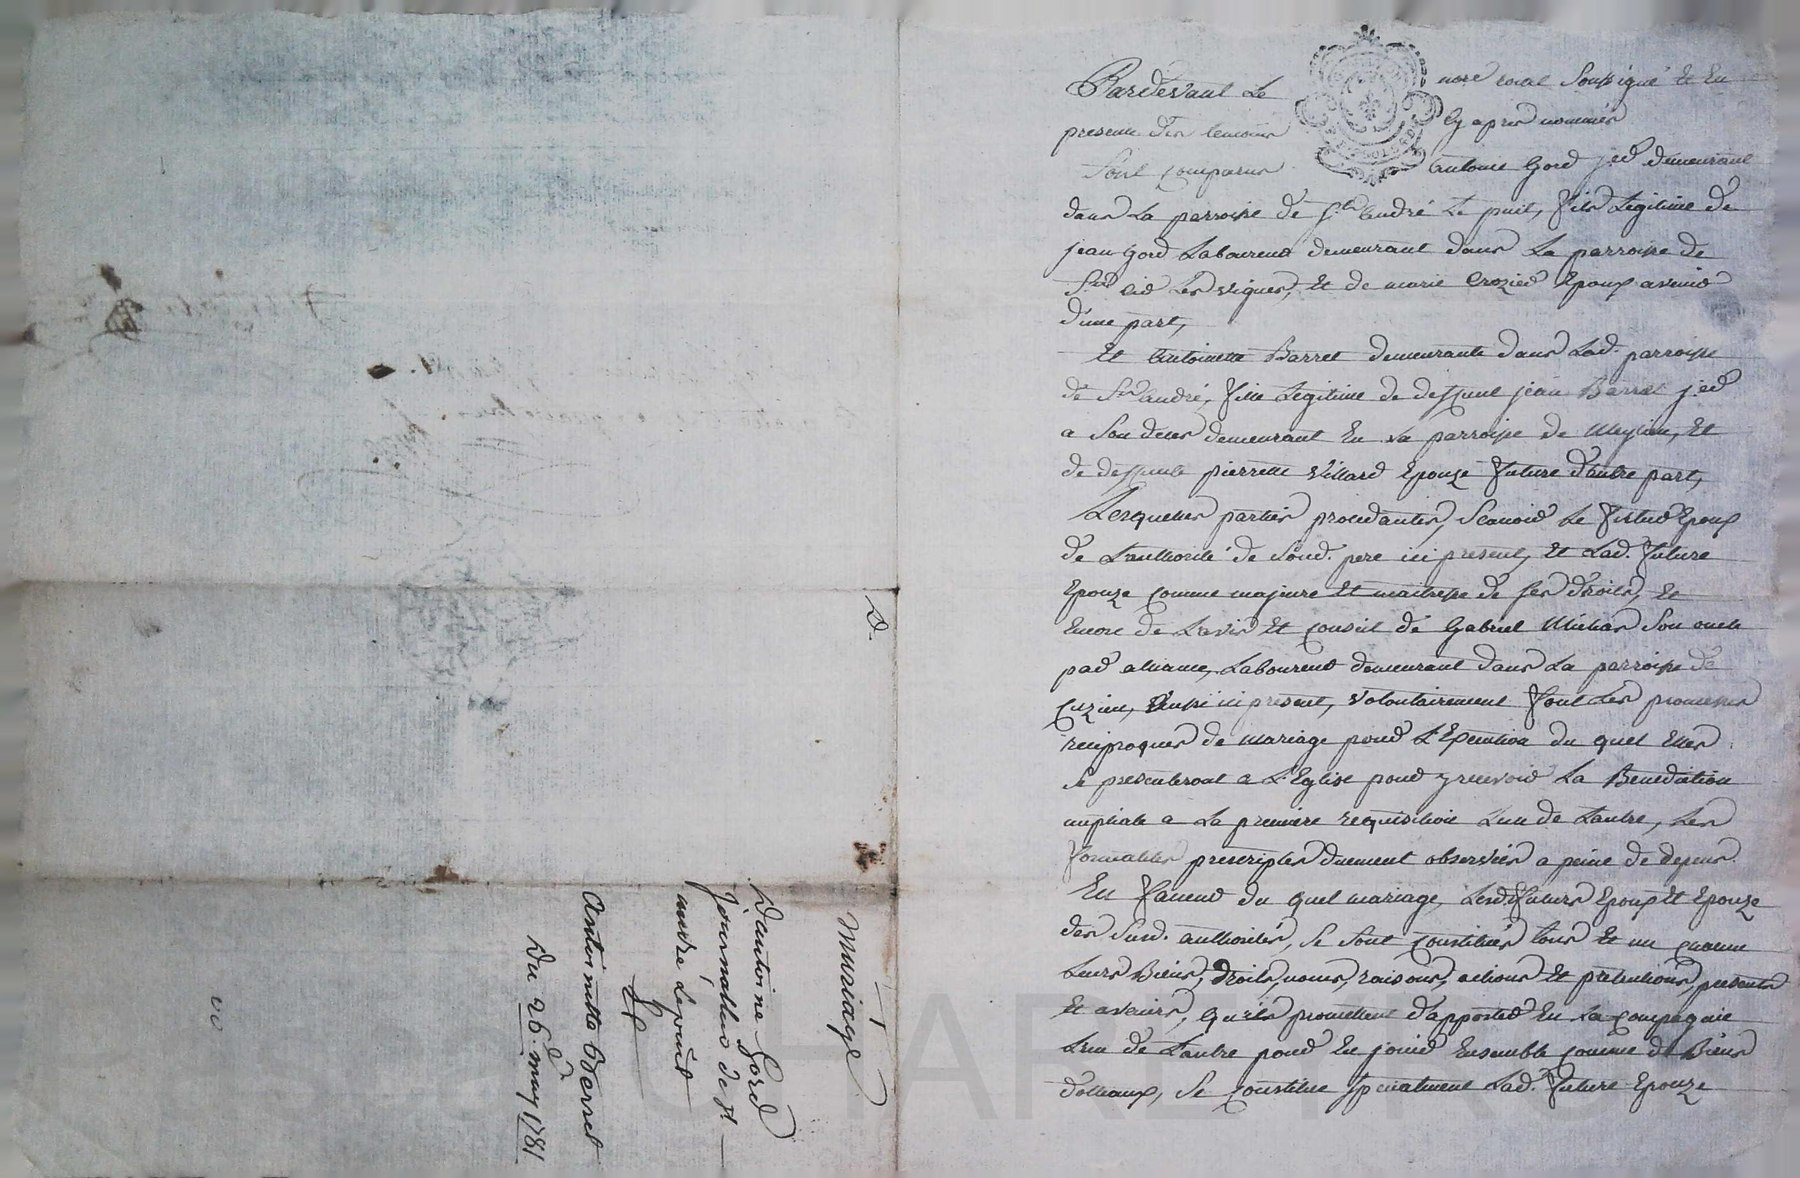 Pardevant Le nore roial soussigné Et En
presence des temoins Cy apres nommés
Sont comparus Antoine Gord jer demeurant
dans La parroisse de St André Le puit, fils Legitime de
jean Gord Laboureur demeurant dans La parroisse de
St Les vignes, Et de marie Crozier Epoux avenir
d'une part,
Et Antoinette Barret demeurante dans Lad. parroisse
de St André, fille Legitime de deffunt jean Barret jer
a Son deces demeurant En La parroisse de Meylieu, Et
de deffunte pierrette Villard Epouze future d'autre part,
Lesquelles parties procedantes, Scavoir Le futur Epoux
de L'authorité de Sond. pere ici present, Et Lad. future
Epouze comme majeure Et maitresse de ses droits, Et
Encore de L'avis Et Conseil de Gabriel Son oncle
par alliance, Laboureur demeurant dans La parroisse de
Cuzieu, aussi ici present, volontairement font Les promesses
reciproques de mariage pour L'Execution du quel Elles
Se presenteront a L'Eglise pour y recevoir La Benediction
nuptiale a La premiere requisition L'un de L'autre, Les
formalités prescriptes duement observées a peine de depens.
En faveur du quel mariage, Lesd. futurs Epoux Et Epouze
des Susd. authorités, Se Sont Constitués tous Et un chacun
Leurs Biens, droits, noms, raisons, actions Et pretentions, presents
Et avenirs, qu'ils promettent d'apporter En La Compagnie
L'un de L'autre pour En jouir Ensemble Comme de Biens
dotteaux, Se Constitue Specialement Lad. future Epouze
D.
Mariage
D'antoine Gord
journallier de St
andré Lepuit
Et
Antoinette Barret
Du 26e may 1781